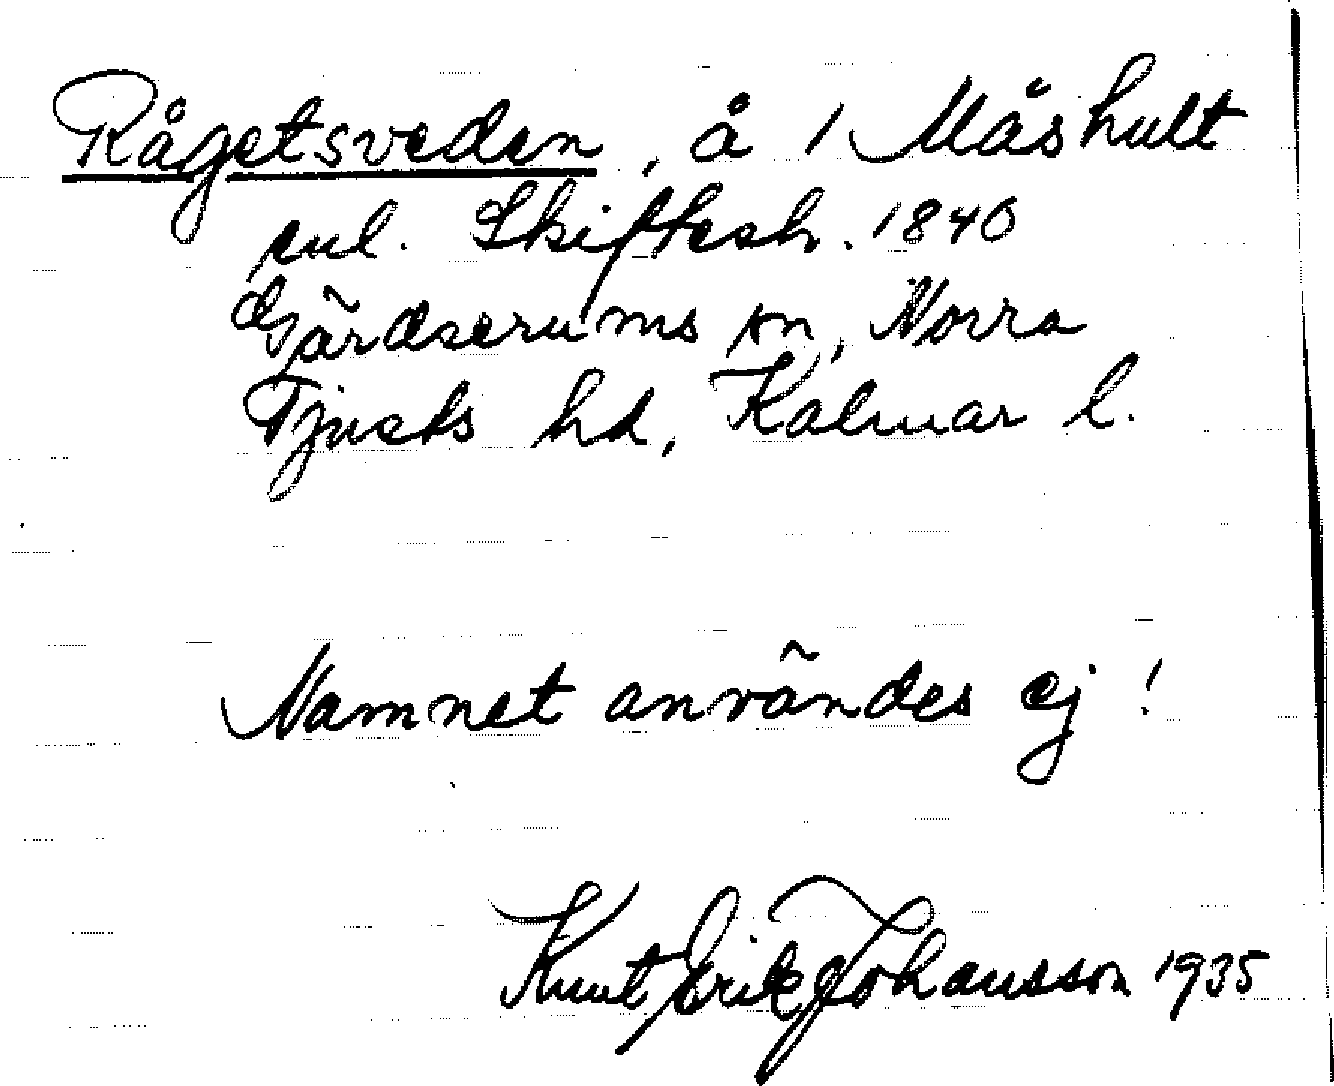 Rågetsveden, å 1 Måshult
enl. Skiftesh. 1840
Gärdserums sn, Norra
Tjusts hd, Kalmar l.
Namnet användes ej!
Knut Erik Johansson 1935